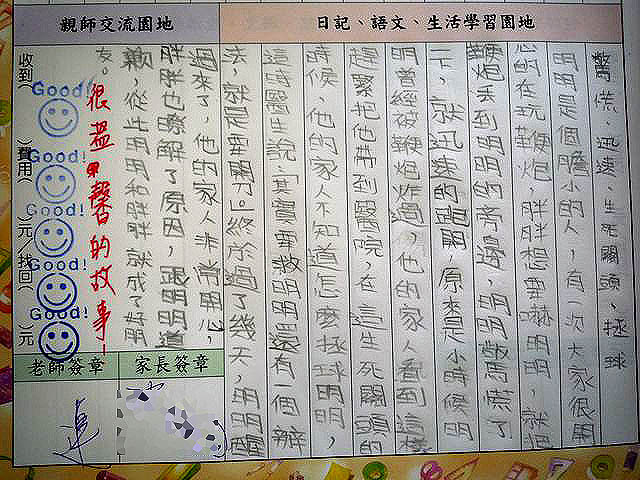 親師交流園地
日記、語文、生活學習園地
驚慌、迅速、生死關頭、拯球
明明是個膽小的人,有一次大家很開
心的在玩鞭炮,胖胖想要嚇明明,就把
鞭炮丟到明明的旁邊,明明驚慌了
一下,就迅速的跑開,原來是小時候明
明曾經被鞭炮炸過,他的家人看到這樣
趕緊把他帶到醫院,在這生死關頭的
時候,他的家人不知道怎麼拯球明明,
這時醫生說:「其實要救明明還有一個辦
法,就是要開刀。」終於過了幾天,明明醒
過來了,他的家人非常用心,
胖胖也瞭解了原因,跟明明道
歉,從此明明和胖胖就成了好朋
友。
很溫馨的故事!
Good!
Good!
Good!
Good!
Good!
收到( )費用( )元/找回( )元
老師簽章
家長簽章